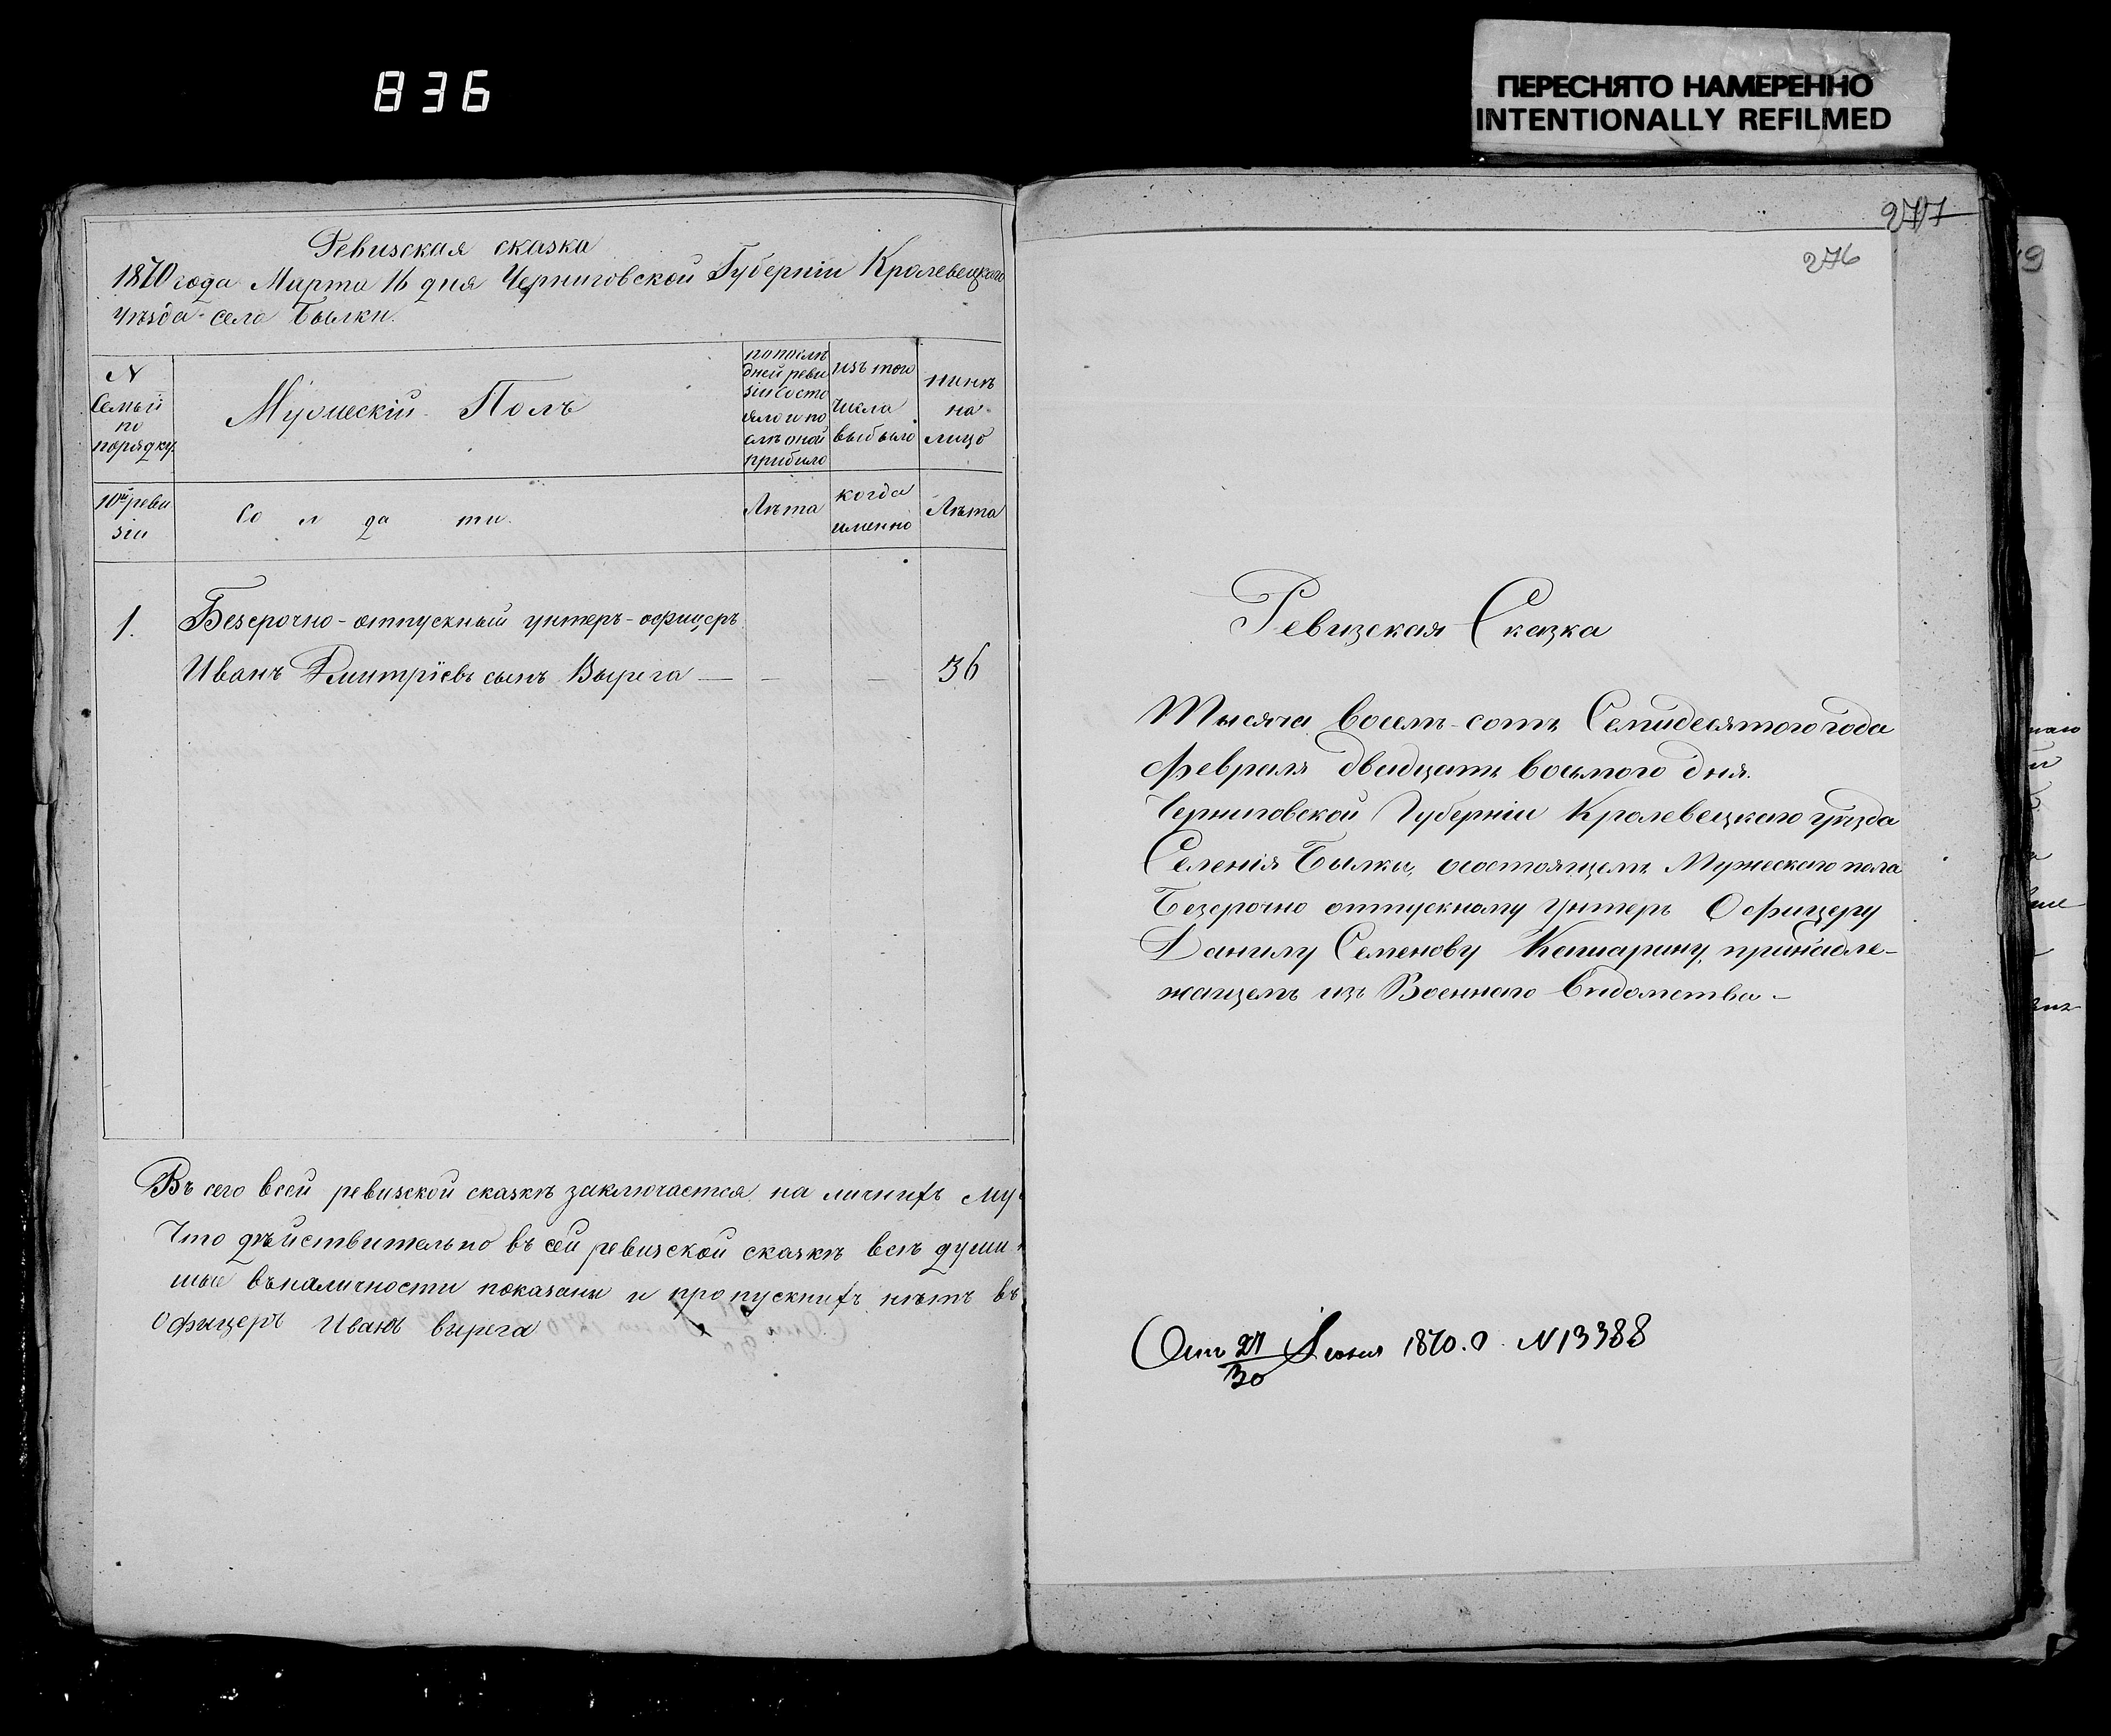 836
ПЕРЕСНЯТО НАМЕРЕННО
INTENTIONALLY REFILMED
Ревизская сказка
1870 года Марта 16 дня Черниговской Губерніи Кролевецкаго
уѣзда села Былки.
N
Семьи
по
порядку.
Мужескій Полъ
по послѣ
дней реви
зіи состо
яло и по
слѣ оной
прибыло
изъ того
числа
выбыло
нынѣ
на
лицо
10й реви
зіи
Солдаты.
Лѣта
когда
именно
Лѣта
1.
Безсрочно-отпускный унтеръ-офицеръ
Иванъ Дмитріевъ сынъ Вырега — — — 36
Въ сего всей ревизской сказкѣ заключается на личныхъ Му
Что дѣйствительно въ сей ревизской сказкѣ всѣ души
ные въ наличности показаны и пропускныхъ нѣтъ въ
Офицеръ Иванъ Вырега
277
276
Ревизская Сказка
Тысяча восемь-сотъ Семидесятого года
февраля двадцать восьмого дня.
Черниговской Губерніи Кролевецкаго уѣзда
Селенія Былки, осостоящемъ Мужескаго пола
Безсрочно отпускному Унтеръ Офицеру
Данилу Семенову принадле-
жащемъ изъ Военнаго Вѣдомства -
От 27/30 Іюня 1870. N 13388